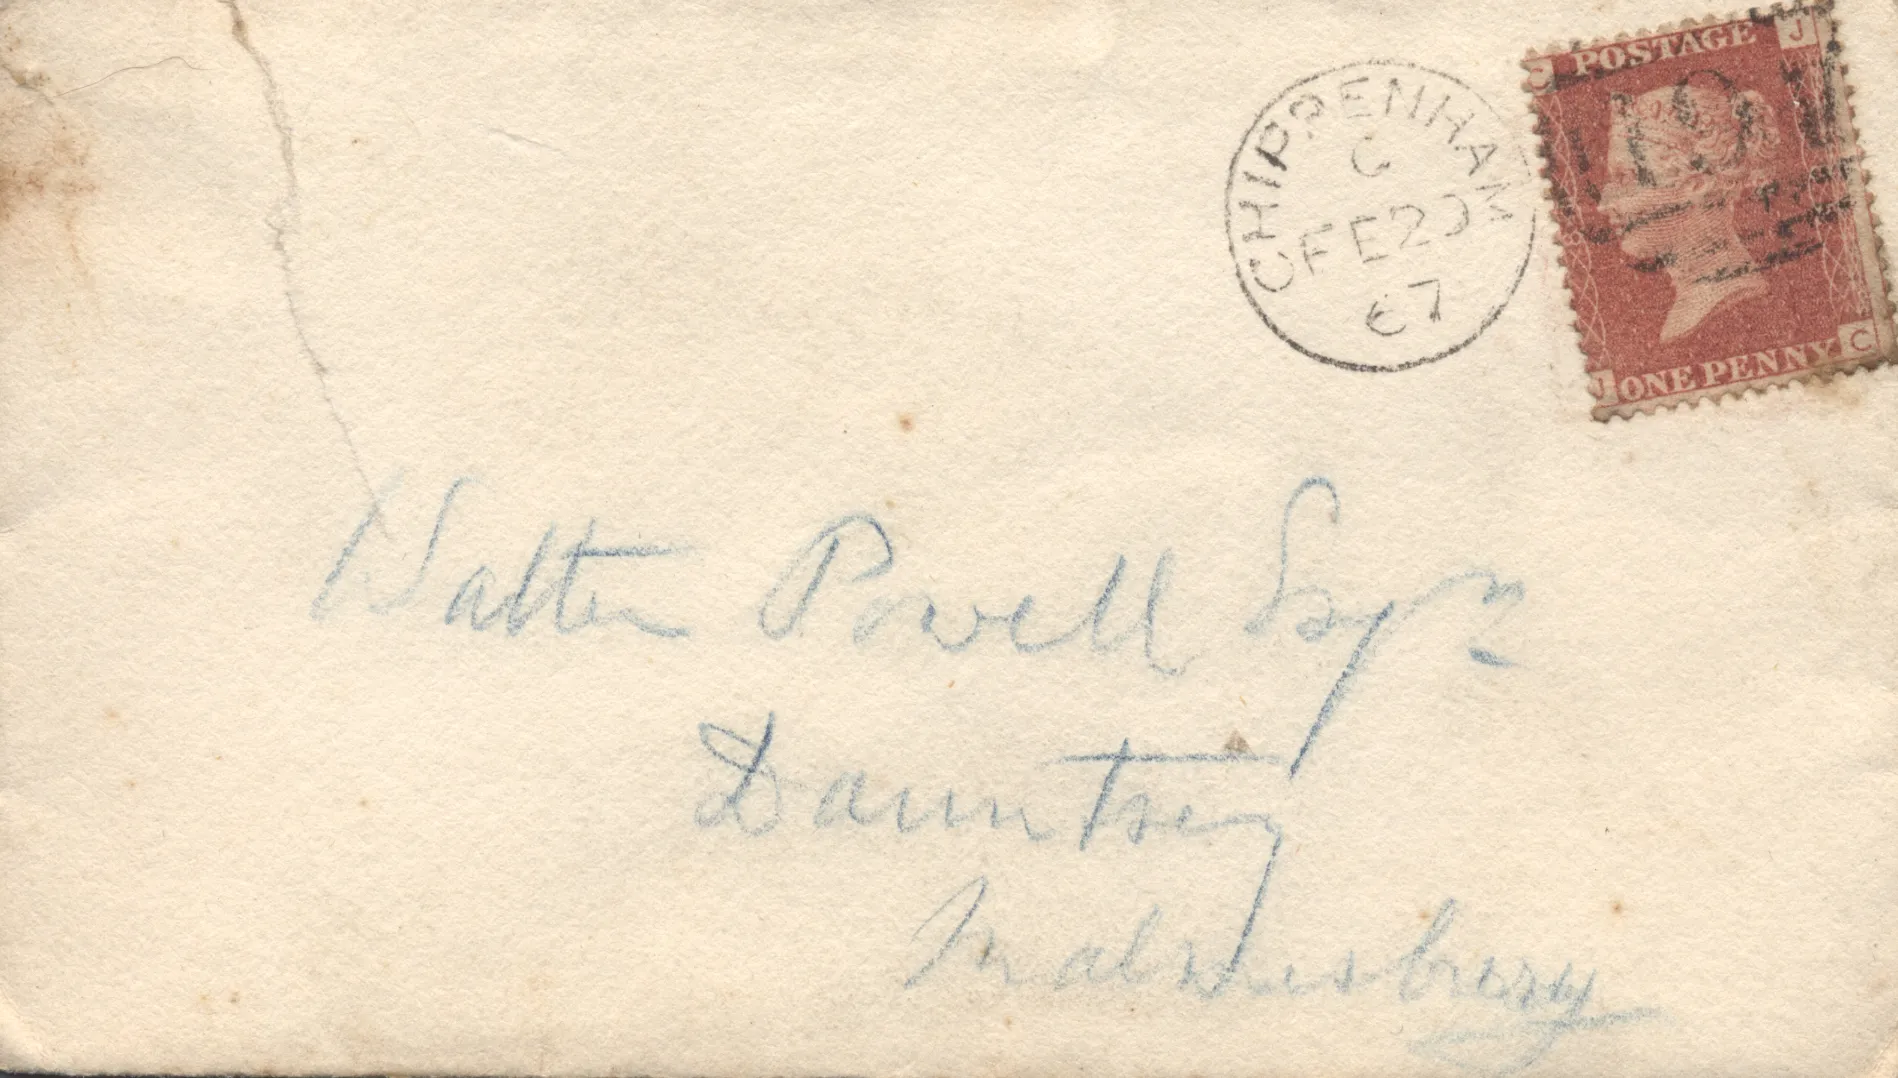 CHIPPENHAM
C
FE 20
67
C POSTAGE J
J ONE PENNY C
Walter Powell Esqre
Dauntsey
Malmesbury